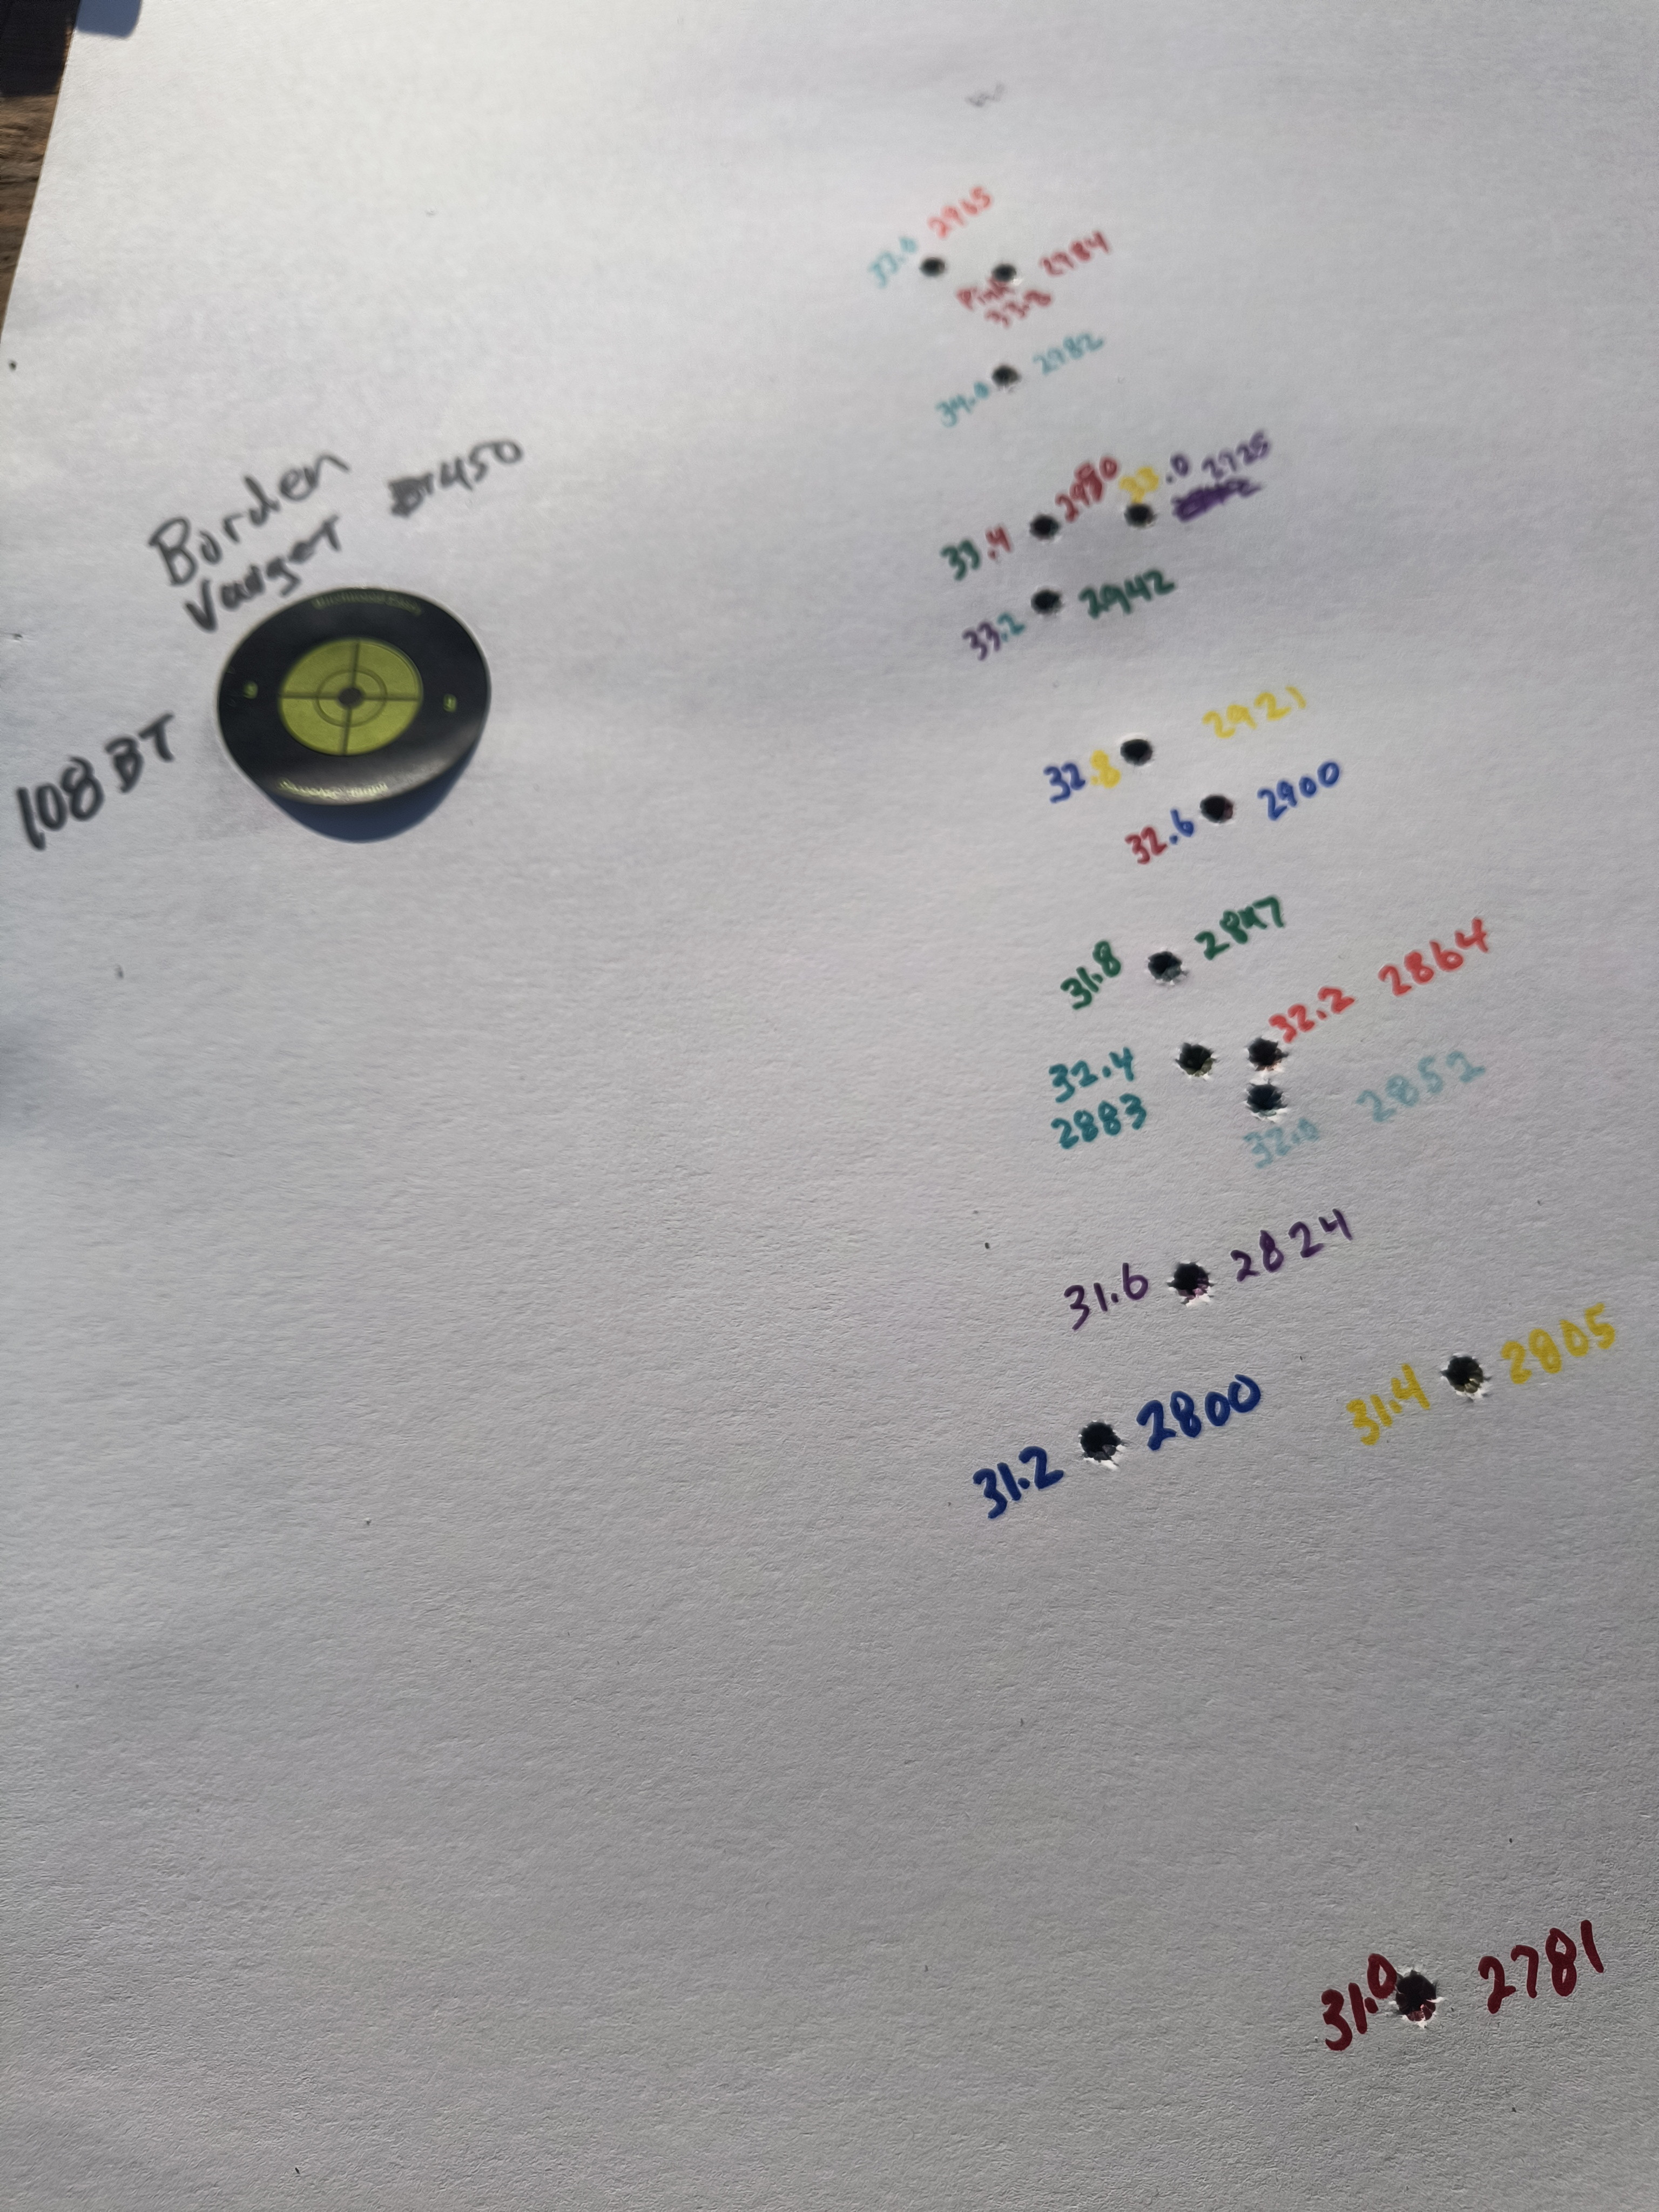 33.6 2965
Pink 2984
33.8
34.0 2982
Borden
Varget 450
33.4 2950
33.0 2925
33.2 2942
108 BT
32.8 2921
32.6 2900
31.8 2847
32.2 2864
32.4
2883
32.0 2852
31.6 2824
31.4 2805
31.2 2800
31.0 2781